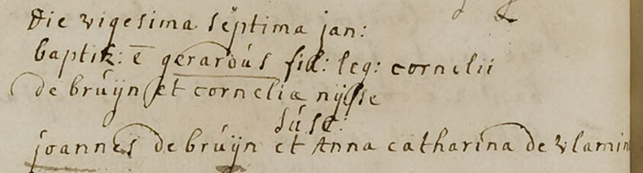 Die vigesima septima jan:
baptiz: ē gerardus fil: leg: cornelii
de bruijn et corneliæ nijsse
susc:
joannes de bruijn et Anna catharina de vlamin